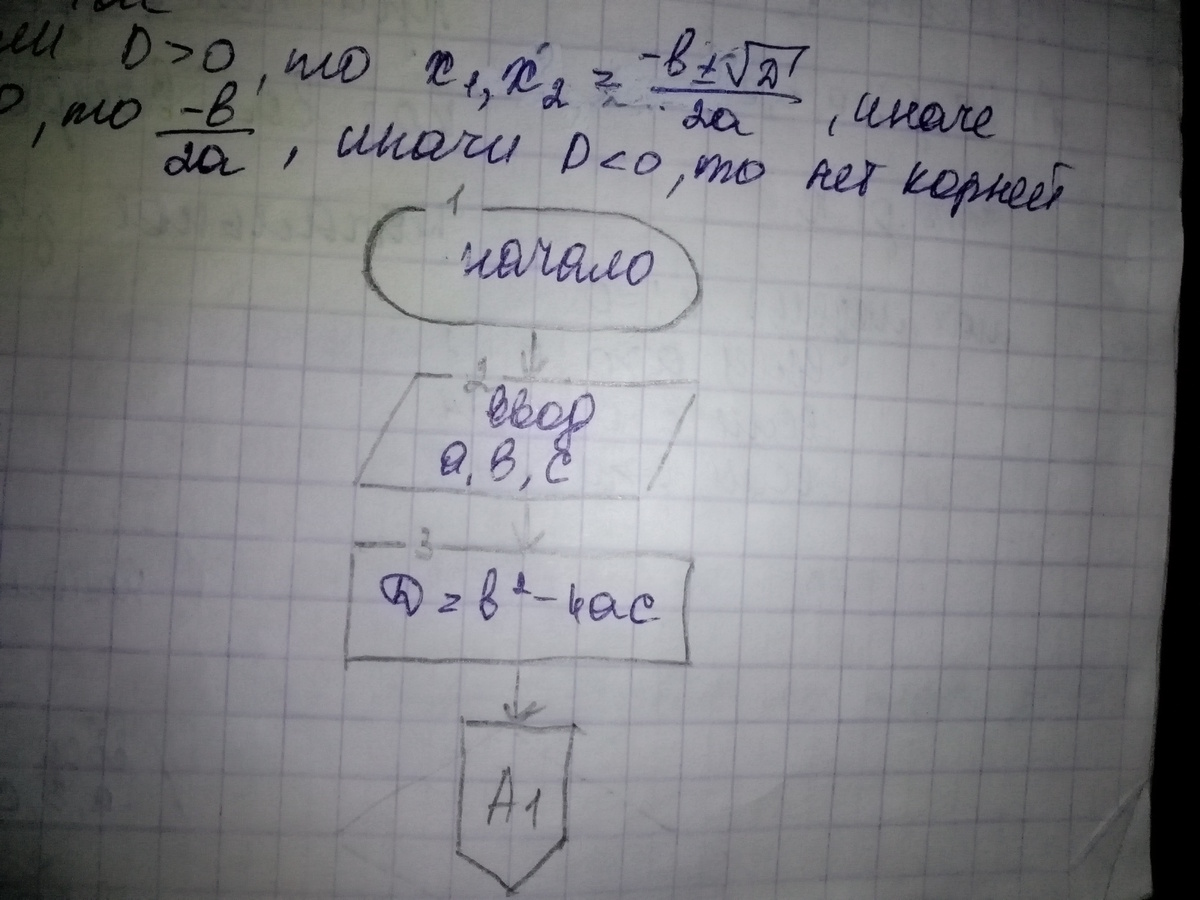 D>0, то x₁, x₂ = (-в ± √D)/2a, иначе
, то -в/2a, иначи D<0, то нет корней
1
начало
2
ввод
а, в, с
3
D = в² - 4ас
А1